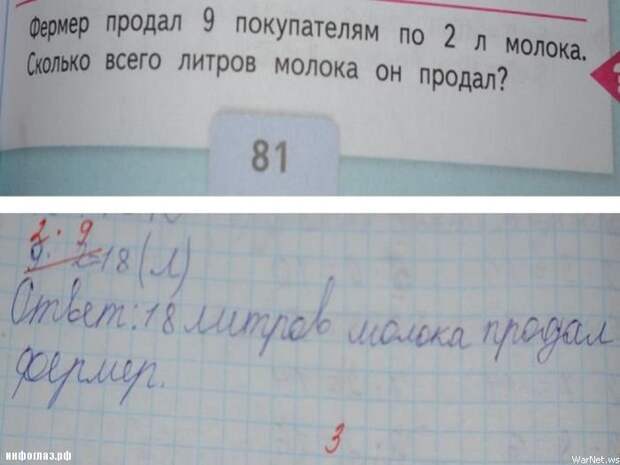 Фермер продал 9 покупателям по 2 л молока.
Сколько всего литров молока он продал?
?
81
2 · 9
9 · 2=18(л)
Ответ: 18 литров молока продал
фермер.
3
инфоглаз.рф
WarNet.ws